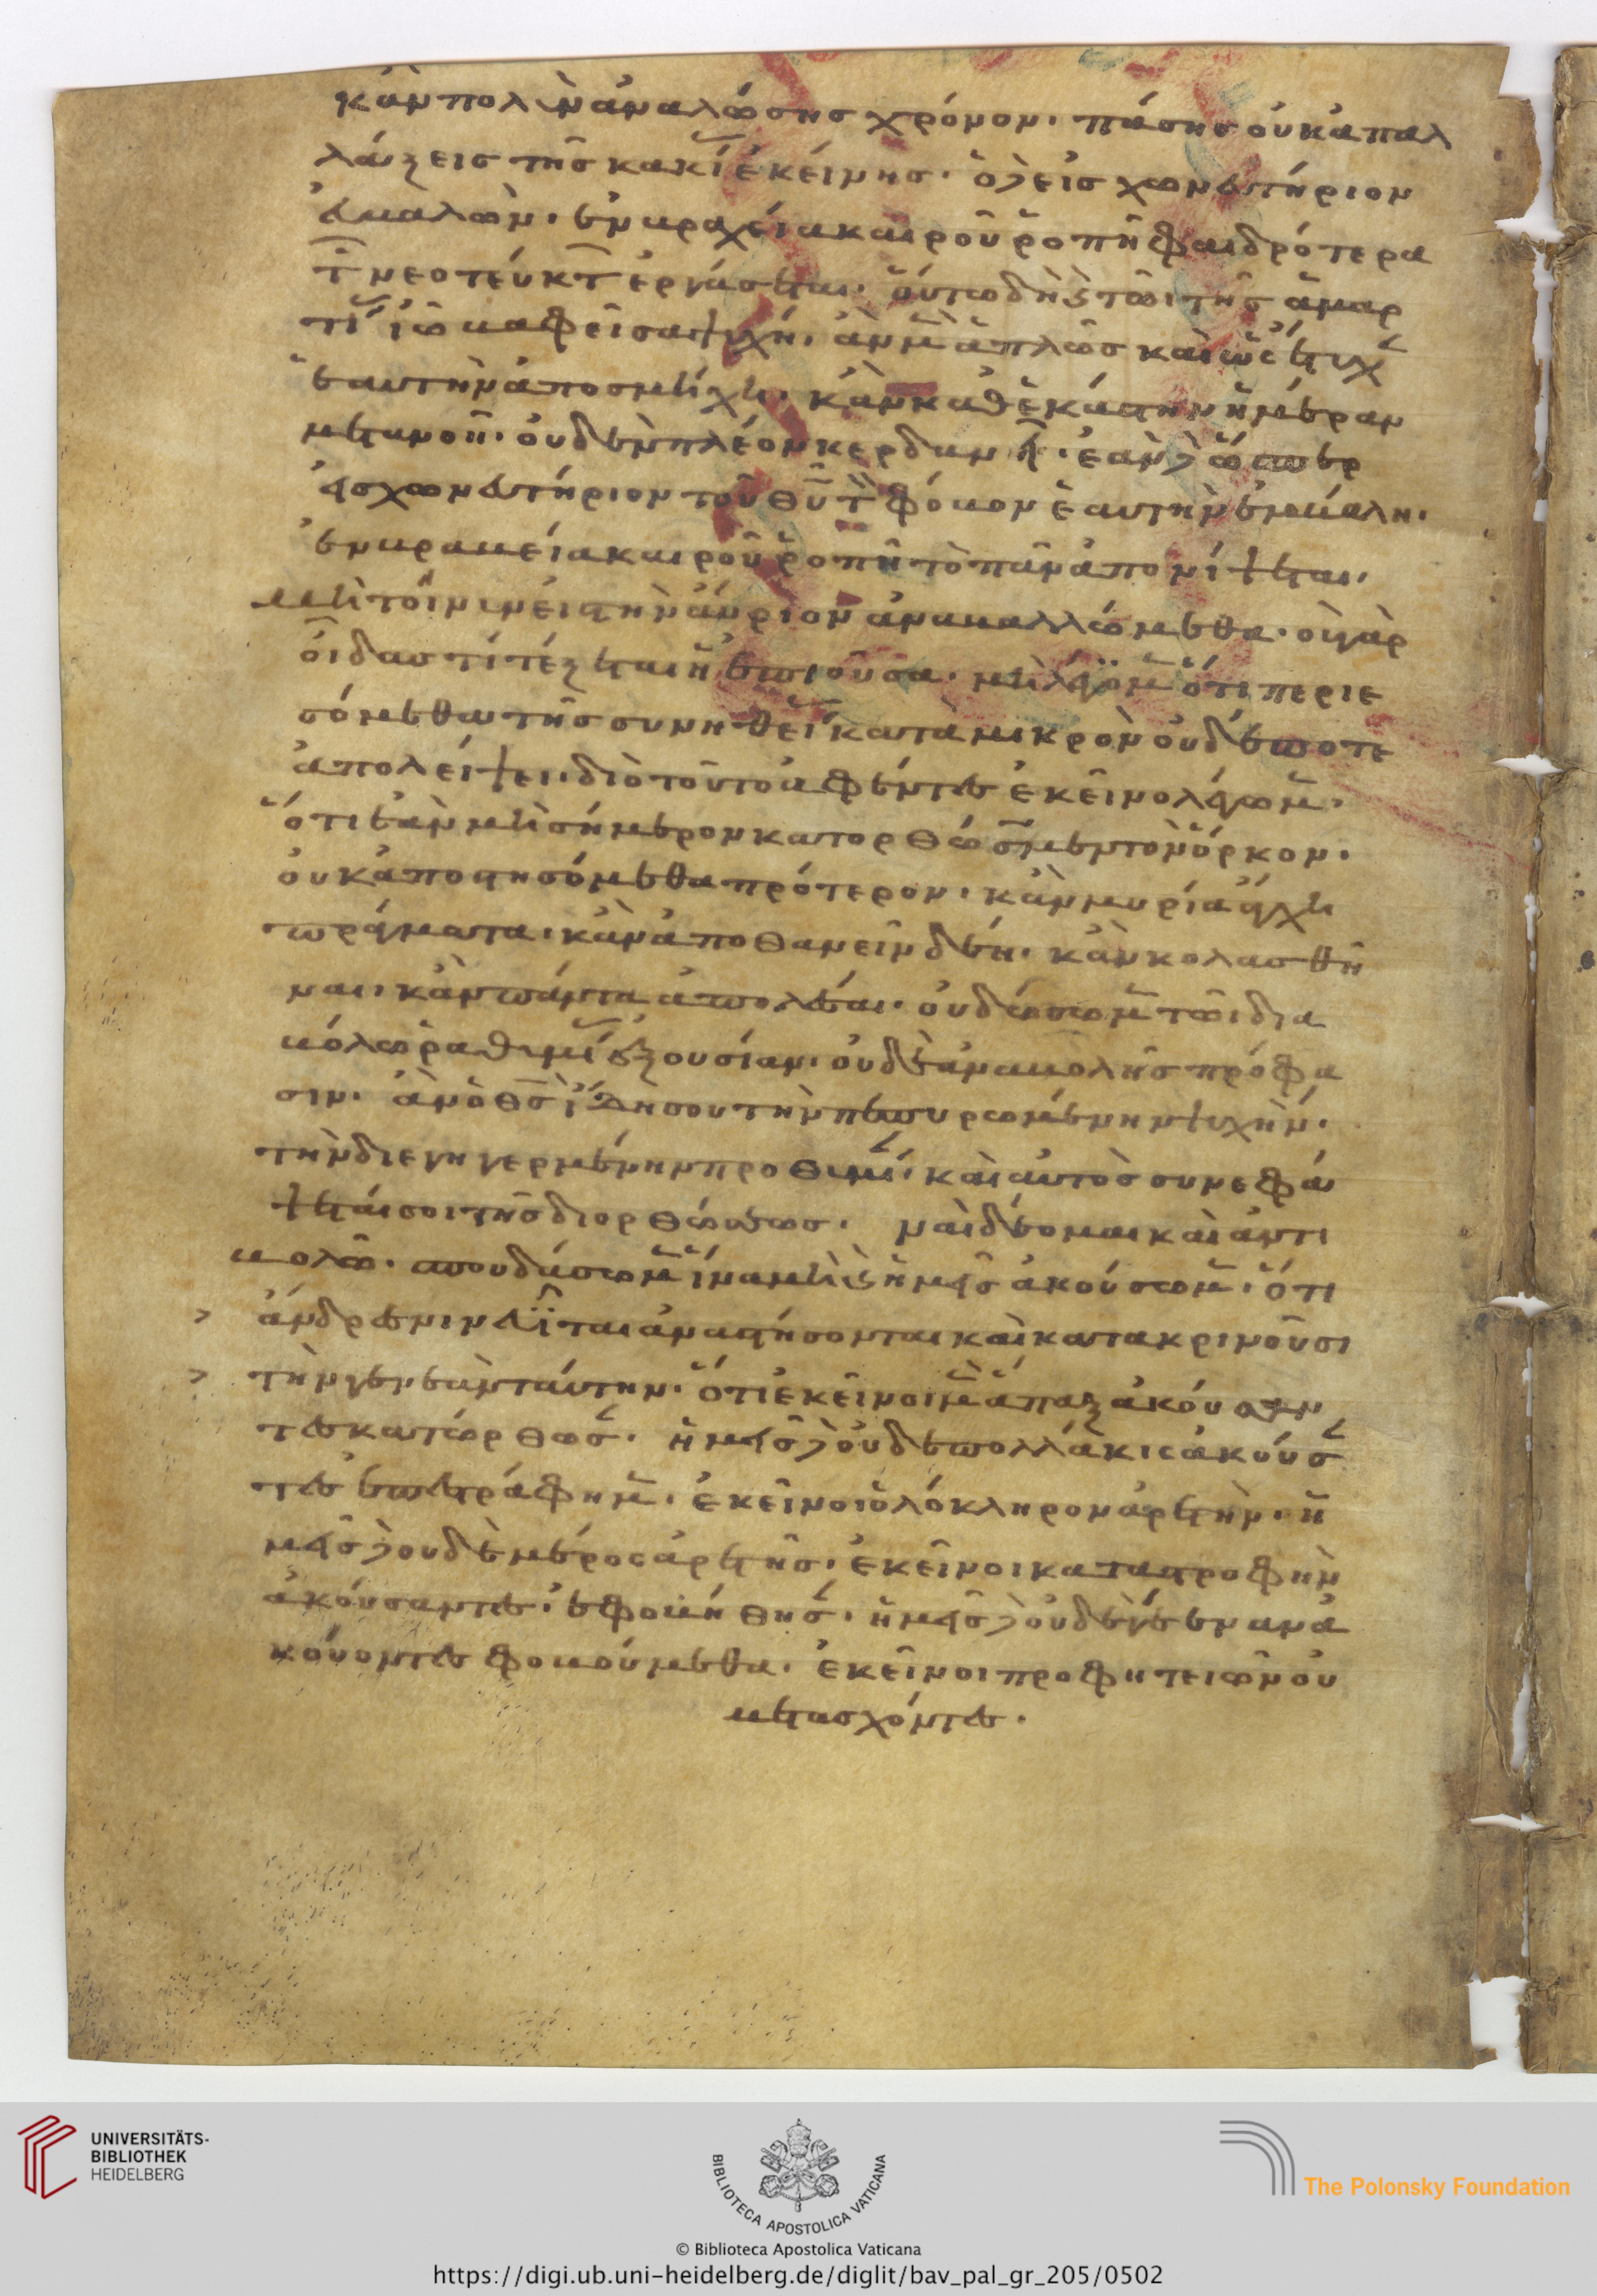 κἂν πολὺν ἀναλώσης χρόνον· πάσης οὐκ ἀπαλ
λάξεις τῆς κακί ἐκείνης· ὁ δὲ εἰς χωνευτήριον
ἐμβαλὼν· ἐν βραχεία καιροῦ ῥοπῆ φαιδρότερα
τ νεοτεύκτ ἐργάσεται· οὕτω δὴ καὶ τῶι τῆς ἁμαρ
τί ἰῶ βαφεῖσα ψυχή· ἂν μὲν ἁπλῶς καὶ ὡς ἔτυχ
ἑαυτὴν ἀποσμήχη· κἂν καθ' ἑκάστην ἡμέραν
μετανοῆ· οὐδὲν πλέον κερδανεῖ· ἐὰν δὲ ὥσπερ
εἰς χωνευτήριον τοῦ θυ τ φόβον ἑαυτὴν ἐμβάλη·
ἐν βραχεία καιροῦ ῥοπῆ τὸ πᾶν ἀπονίψεται·
μὴ τοίνυν εἰς τὴν αὔριον ἀναβαλλώμεθα· οὐ γὰρ
οἶδας τί τέξεται ἡ ἐπιοῦσα· μὴ λέγωμ ὅτι περιε
σόμεθα τῆς συνηθεί κατὰ μικρὸν οὐδέποτε
ἀπολείψει· διὸ τοῦτο ἀφέντες ἐκεῖνο λέγωμ·
ὅτι ἐὰν μὴ σήμερον κατορθώσωμεν τὸν ὅρκον·
οὐκ ἀποστησόμεθα πρότερον· κἂν μυρία ἐπέχη
πράγματα· κἂν ἀποθανεῖν δέη· κἂν κολασθῆ
ναι· κἂν πάντα ἀπολέσαι· οὐ δώσωμ τῶι δια
βόλω ῥαθυμί ἐξουσίαν· οὐδὲ ἀναβολῆς πρόφα
σιν· ἂν ὁ θς ἴδη σου τὴν πεπυρωμένην ψυχὴν·
τὴν διεγηγερμένην προθυμί· καὶ αὐτὸς συνεφά
ψεταί σοι τῆς διορθώσεως· ναὶ δέομαι καὶ ἀντι
βολῶ· σπουδάσωμ ἵνα μὴ καὶ ἡμεῖς ἀκούσωμ· ὅτι
ἄνδρες νινευῖται ἀναστήσονται καὶ κατακρινοῦσι
τὴν γενεὰν ταύτην· ὅτι ἐκεῖνοι μὲν ἅπαξ ἀκούσαν
τες κατώρθωσ· ἡμεῖς δὲ οὐδὲ πολλάκις ἀκούσ
τες ἐπεστράφημ· ἐκεῖνοι ὁλόκληρον ἀρετὴν· ἡ
μεῖς δὲ οὐδὲ μέρος ἀρετῆς· ἐκεῖνοι καταστροφὴν
ἀκούσαντες· ἐφοβήθησ· ἡμεῖς δὲ οὐδὲ γέενναν ἀ
κούοντες φοβούμεθα· ἐκεῖνοι προφητειῶν οὐ
μετασχόντες·
UNIVERSITÄTS-
BIBLIOTHEK
HEIDELBERG
BIBLIOTECA APOSTOLICA VATICANA
The Polonsky Foundation
© Biblioteca Apostolica Vaticana
https://digi.ub.uni-heidelberg.de/diglit/bav_pal_gr_205/0502